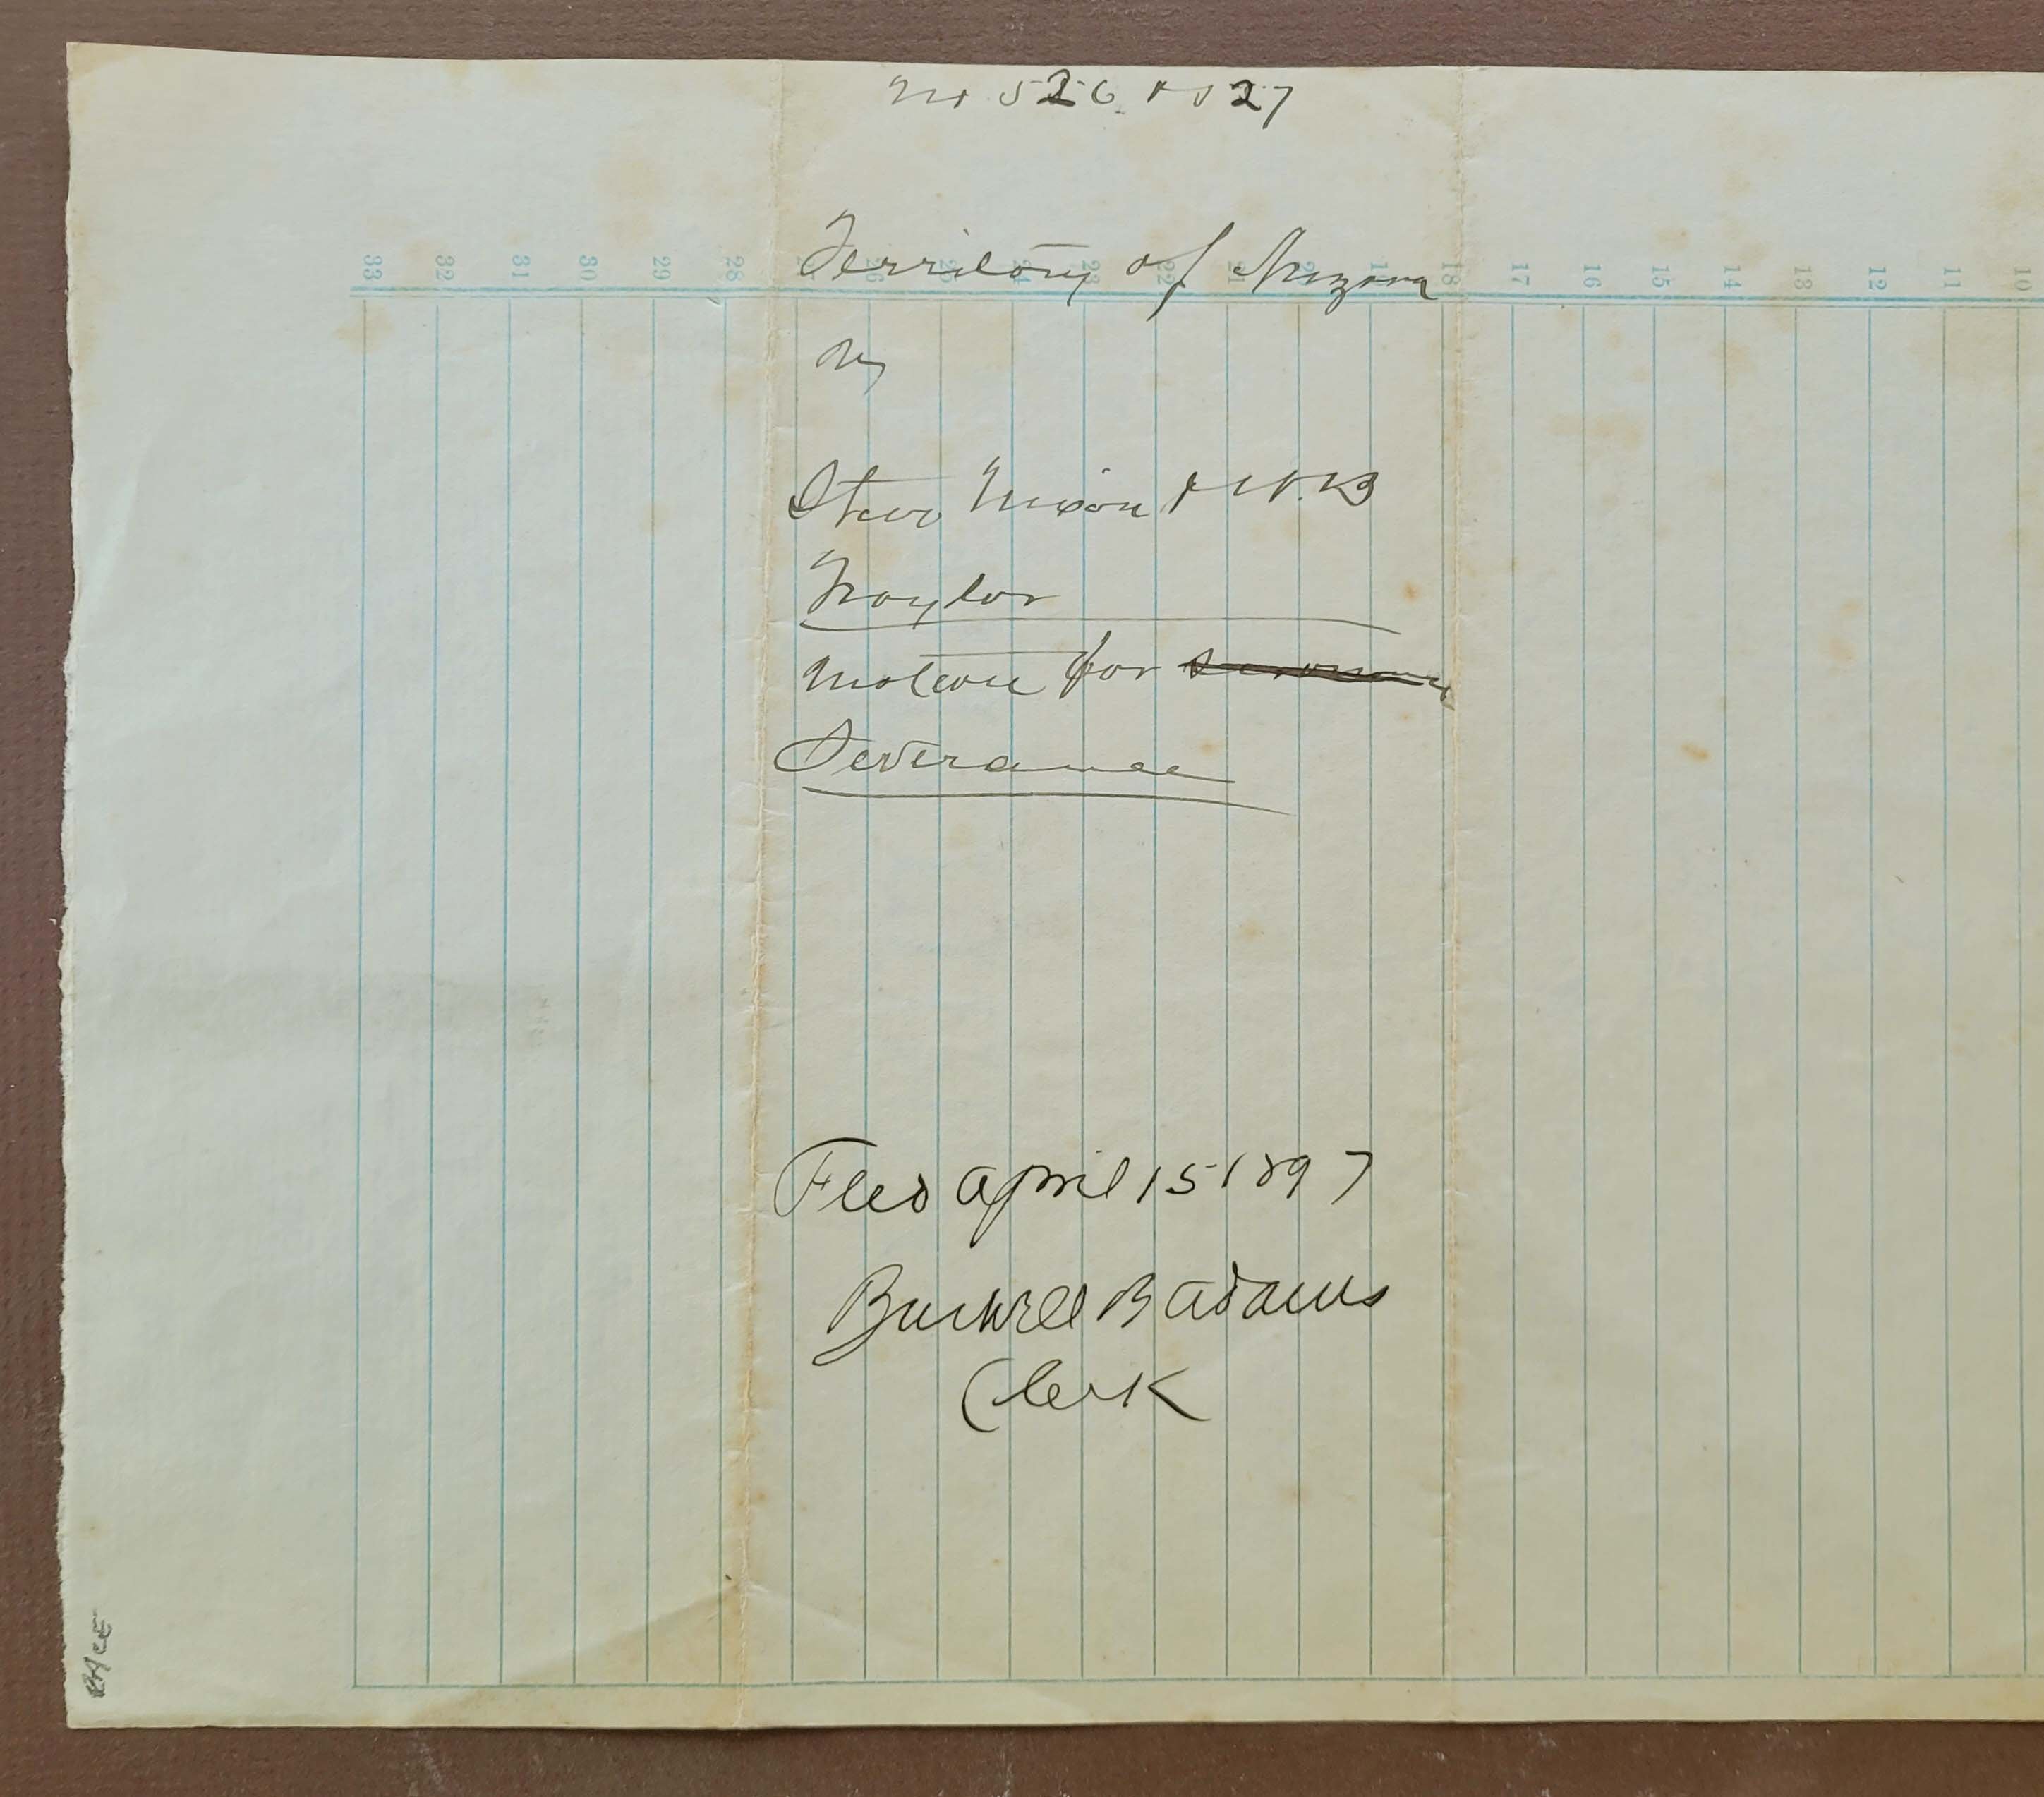 No 526 & 527
33 32 31 30 29 28 26 25 24 23 22 21 18 17 16 15 14 13 12 11 10
Territory of Arizona
vs
Nixon & W.B
Traylor
Motion for
Severance
Filed April 15 1897
Burwell B Adams
Clerk